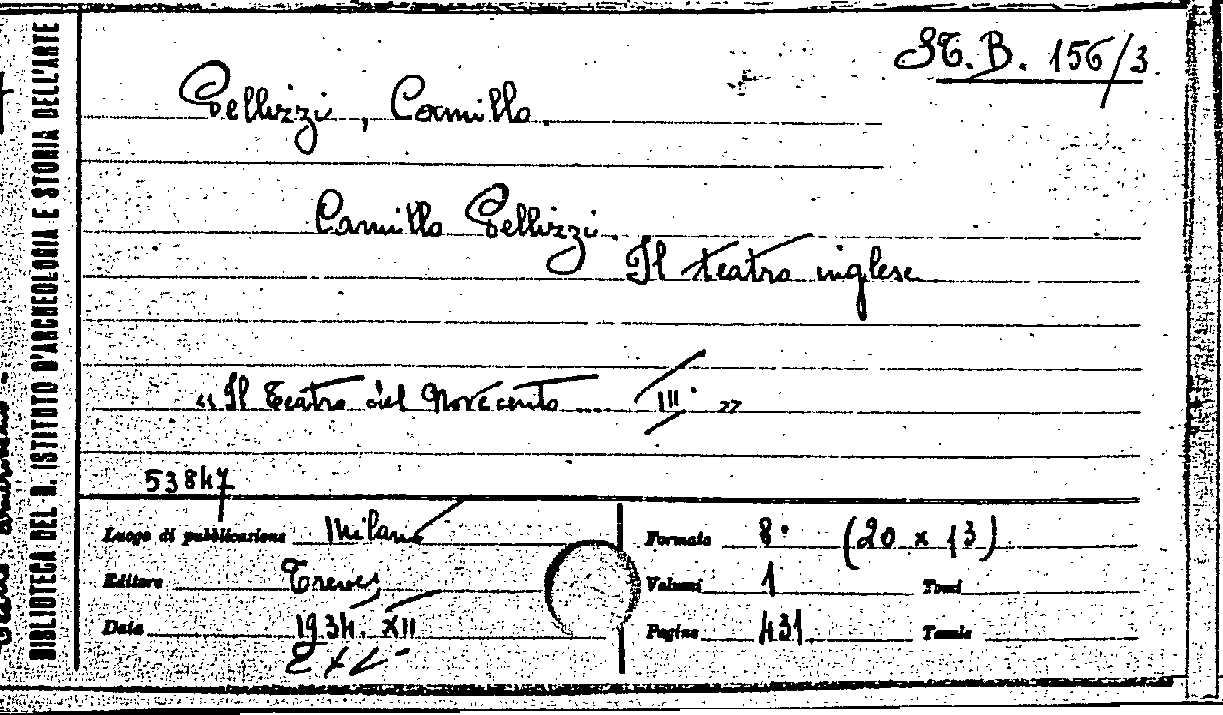 ST. B. 156/3
Pellizzi, Camillo.
Camillo Pellizzi.
Il teatro inglese
« Il Teatro del Novecento .... III° »
53847
Luogo di pubblicazione Milano
Formato 8° (20 x 13)
Editore Treves
Volumi 1 Tomi
Data 1934. XII
Pagine 431 Tavole
BIBLIOTECA DEL R. ISTITUTO D'ARCHEOLOGIA E STORIA DELL'ARTE